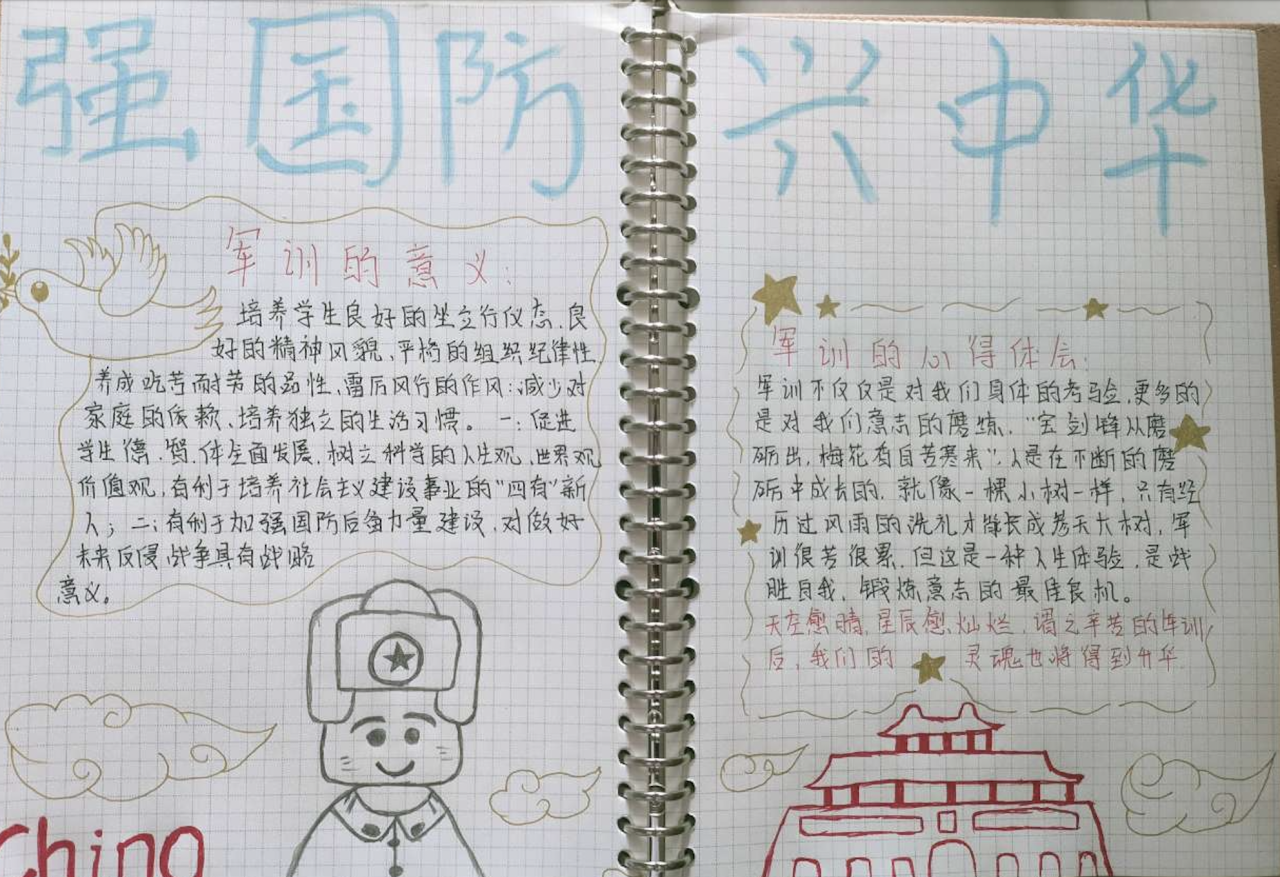 强国防 兴中华
军训的意义:
培养学生良好的坐立行仪态、良
好的精神风貌、严格的组织纪律性
养成吃苦耐劳的品性、雷厉风行的作风;减少对
家庭的依赖、培养独立的生活习惯。一:促进
学生德、智、体全面发展,树立科学的人生观、世界观
价值观,有利于培养社会主义建设事业的"四有"新
人;二:有利于加强国防后备力量建设,对做好
未来反侵战争具有战略
意义。
China
军训的心得体会:
军训不仅仅是对我们身体的考验,更多的
是对我们意志的磨练,"宝剑锋从磨
砺出,梅花香自苦寒来",人是在不断的磨
砺中成长的,就像一棵小树一样,只有经
历过风雨的洗礼才能长成参天大树,军
训很苦很累,但这是一种人生体验,是战
胜自我,锻炼意志的最佳良机。
天空愈晴,星辰愈灿烂,谓之辛苦的军训
后,我们的 灵魂也将得到升华